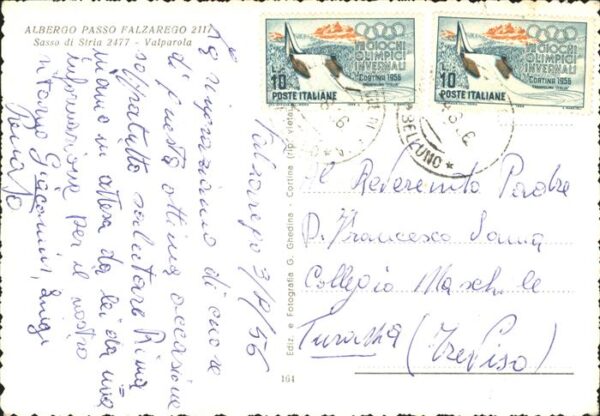 ALBERGO PASSO FALZAREGO 2117
Sasso di Stria 2477 - Valparola
Falzarego 3/8/56
La ringraziamo di cuore
di questa ottima occasione
soprattutto salutare Rina
siamo in attesa da lei da una
informazione per il nostro
ritorno Giacomini, Luigi
Renato
Ediz. e Fotografia G. Ghedina - Cortina (rip. vietata)
164
VII GIOCHI
OLIMPICI
INVERNALI
CORTINA 1956
L. 10
POSTE ITALIANE
VII GIOCHI
OLIMPICI
INVERNALI
CORTINA 1956
L. 10
POSTE ITALIANE
BELLUNO
Al Reverendo Padre
P. Francesco
Collegio Maschile
(Treviso)